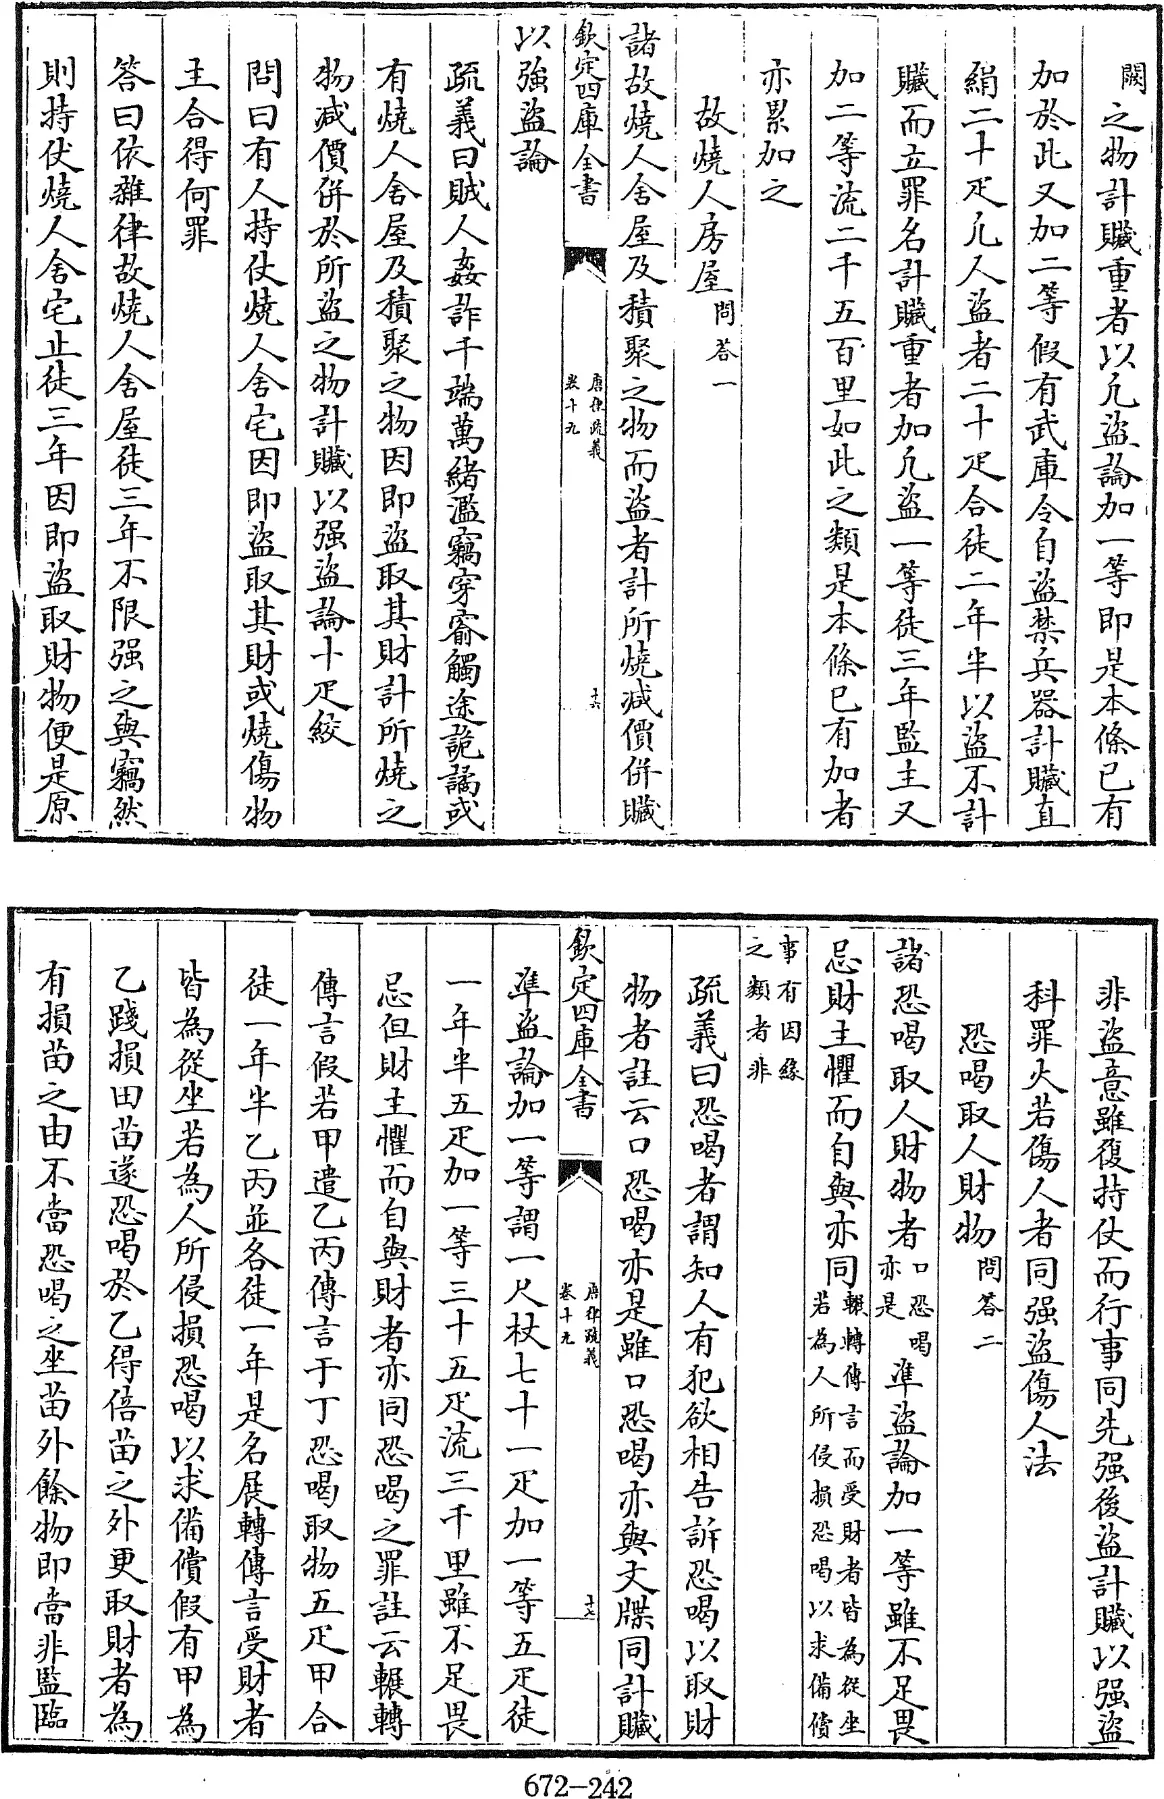 闕之物計贓重者以凡盜論加一等即是本條已有
加於此又加二等假有武庫令自盜禁兵器計贓直
絹二十疋凡人盜者二十疋合徒二年半以盜不計
贓而立罪名計贓重者加凡盜一等徒三年監主又
加二等流二千五百里如此之類是本條已有加者
亦累加之
故燒人房屋問答一
諸故燒人舍屋及積聚之物而盜者計所燒減價併贓
欽定四庫全書
唐律疏義
卷十九
十六
以強盜論
疏義曰賊人姦詐千端萬緒濫竊穿窬觸途詭譎或
有燒人舍屋及積聚之物因即盜取其財計所燒之
物減價併於所盜之物計贓以强盜論十疋絞
問曰有人持仗燒人舍宅因即盜取其財或燒傷物
主合得何罪
答曰依雜律故燒人舍屋徒三年不限强之與竊然
則持仗燒人舍宅止徒三年因即盜取財物便是原
非盜意雖復持仗而行事同先强後盜計贓以强盜
科罪火若傷人者同强盜傷人法
恐喝取人財物問答二
諸恐喝取人財物者口恐喝亦是準盜論加一等雖不足畏
忌財主懼而自與亦同輾轉傳言而受財者皆為從坐若為人所侵損恐喝以求備償
事有因緣之類者非
疏義曰恐喝者謂知人有犯欲相告訴恐喝以取財
物者註云口恐喝亦是雖口恐喝亦與文牒同計贓
欽定四庫全書
唐律疏義
卷十九
十七
準盜論加一等謂一尺杖七十一疋加一等五疋徒
一年半五疋加一等三十五疋流三千里雖不足畏
忌但財主懼而自與財者亦同恐喝之罪註云輾轉
傳言假若甲遣乙丙傳言于丁恐喝取物五疋甲合
徒一年半乙丙並各徒一年是名展轉傳言受財者
皆為從坐若為人所侵損恐喝以求備償假有甲為
乙踐損田苗遂恐喝於乙得倍苗之外更取財者為
有損苗之由不當恐喝之坐苗外餘物即當非監臨
672-242